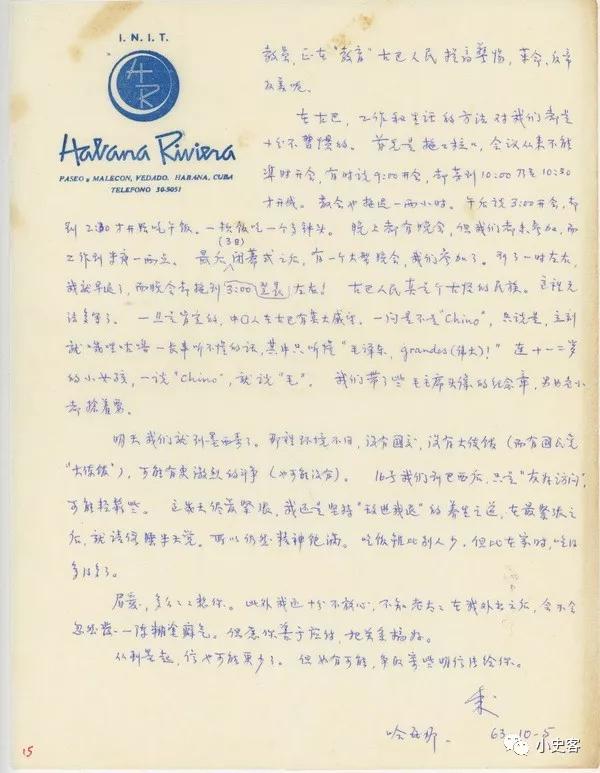 I. N. I. T.
HR
Habana Riviera
PASEO y MALECON, VEDADO, HABANA, CUBA
TELEFONO 30-5051
教员,正在"教育"古巴人民提高警惕,革命,反帝
反美呢。
在古巴,工作和生活的方法对我们都是
十分不习惯的。首先是拖拖拉拉,会议从来不能
准时开会,有时说9:00开会,却要到10:00乃至10:30
才开成。宴会也拖迟一两小时。午后说3:00开会,却
到2:30才开始吃午饭。一顿饭吃一个多钟头。晚上都有晚会,但我们都未参加,而
工作到半夜一两点。最后(3日)闭幕式之后,有一个大型晚会,我们参加了。到了一时左右,
我就早退了,而晚会却拖到3:00左右!古巴人民真是个的民族。这种
一旦是肯定的,中国人在古巴有莫大威望。一问是不是"Chino",只说是,立刻
就一长串听不懂的话,其中只听懂"毛泽东,grandes(伟大)!"连十一二岁
的小女孩,一说"Chino",就说"毛"。我们带了些毛主席头像的纪念章,男女老小
都抢着要。
明天我们就到墨西哥了。那裡环境不同,没有國交,没有大使馆(而有國民党
"大使馆"),可能有更激烈的斗争(也可能没有)。16号我们到巴西后,只是"友好访问",
可能轻松些。这几天终最紧张,我还是坚持"敌进我退"的养生之道,在最紧张之
后,就请假睡半天觉。所以仍然精神饱满。吃饭虽比别人少,但比在家时,吃得
多得多了。
眉爱,多么么想你。此外我还十分不放心,不知老太太在我外出之后,会不会
忽然发一阵糊塗脾气。但愿你善于应付,把关系搞好。
从利是起,信也可能更少了。但如有可能,争取寄些明信片给你。
哈瓦那. 63-10-5
15
小史客